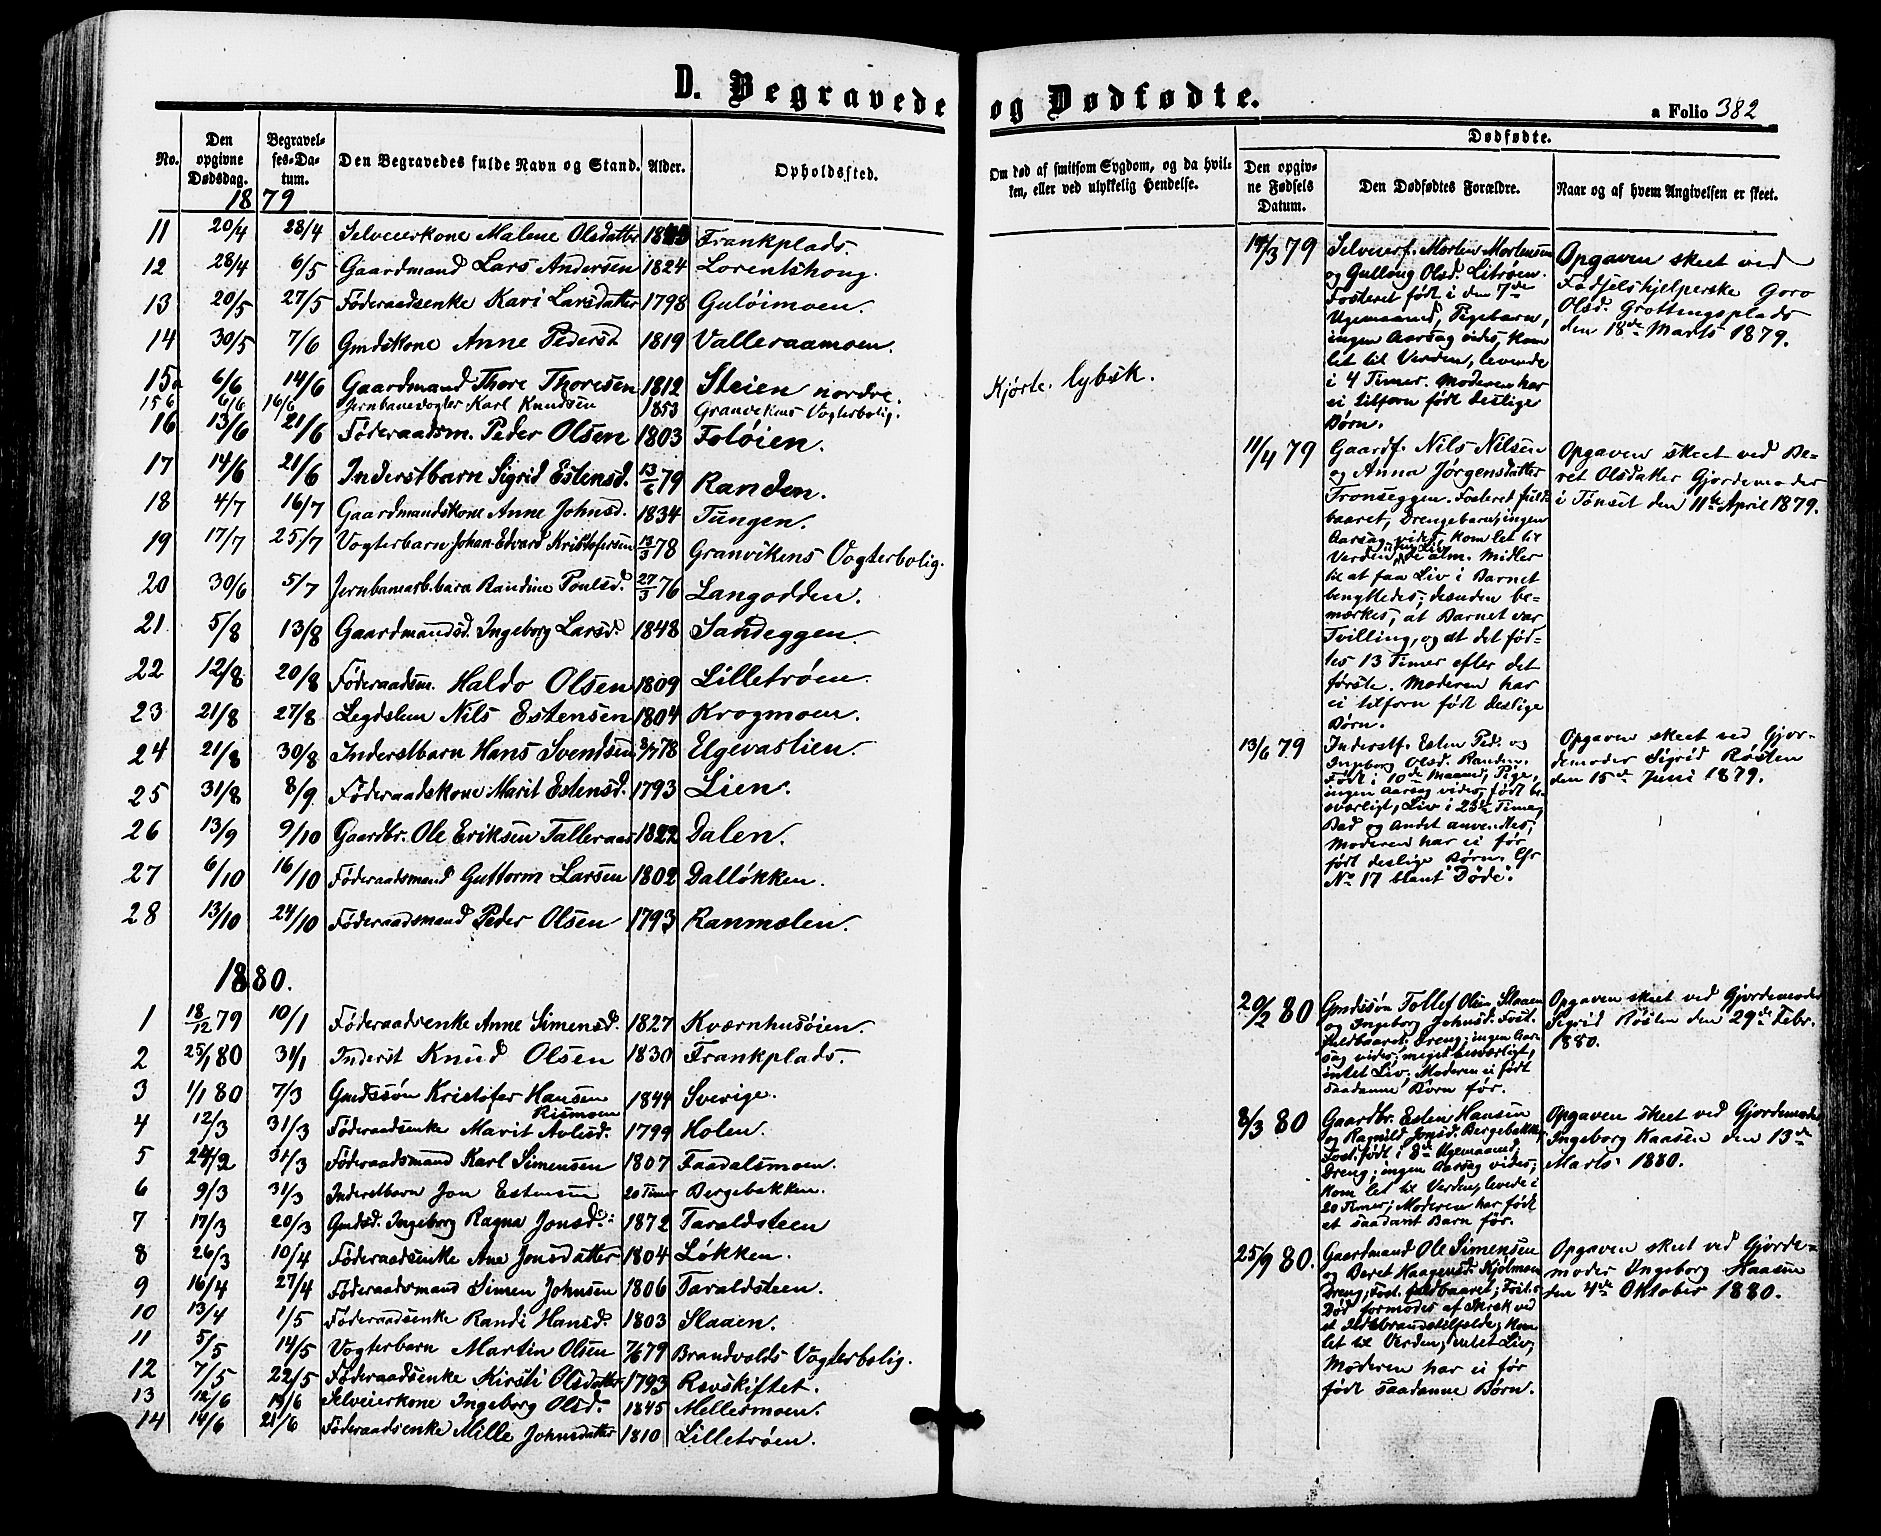 D. Begravede og Dødfødte.
a Folio 382
No.
Den opgivne Dødsdag.
Begravelses-Datum.
Den Begravedes fulde Navn og Stand.
Alder.
Opholdssted.
Om død af smitsom Sygdom, og da hvilken, eller ved ulykkelig Hendelse.
Dødfødte.
Den opgivne Fødsels Datum.
Den Dødfødtes Forældre.
Naar og af hvem Angivelsen er skeet.
1879
11 20/4 28/4 Selveierkone Malene Olsdatter Frankplads.
12 28/4 6/5 Gaardmand Lars Andersen 1824 Lorentshoug.
13 20/5 27/5 Føderaadsenke Kari Larsdatter 1798 Guløimoen.
14 30/5 7/6 Gmdskone Anne Pedersd 1819 Valleraamoen.
15a 6/6 14/6 Gaardmand Thore Thoresen 1812 Steien nordre.
15b 6/6 16/6 Jernbanevogter Karl Knudsen 1853 Granvikens Vogterbolig. Kjørte.
16 13/6 21/6 Føderaadsm. Peder Olsen 1803 Foløien.
17 14/6 21/6 Inderstbarn Sigrid Estensd. 13/6 79 Randen.
18 4/7 16/7 Gaardmandskone Anne Johnsd. 1834 Tungen.
19 17/7 25/7 Vogterbarn Johan Edvard Kristofersen 13/3 78 Granvikens Vogterbolig.
20 30/6 5/7 Jernbanearb.barn Randine Poulsd. 27/3 76 Langodden.
21 5/8 13/8 Gaardmandsd. Ingeborg Larsd. 1848 Sandeggen
22 12/8 20/8 Føderaadsm. Haldo Olsen 1809 Lilletrøen.
23 21/8 27/8 Legdslem Nils Estensen 1804 Krogmoen.
24 21/8 30/8 Inderstbarn Hans Svendsen 78 Elgevaslien.
25 31/8 8/9 Føderaadskone Marit Estensd. 1793 Lien.
26 13/9 9/10 Gaardbr. Ole Eriksen Talleraas 1822 Dalen.
27 6/10 16/10 Føderaadsmand Guttorm Larsen 1802 Dalløkken.
28 13/10 24/10 Føderaadsmand Peder Olsen 1793 Ranmælen.
1880.
1 18/12 79 10/1 Føderaadsenke Anne Simensd. 1827 Kværnhusøien.
2 25/1 80 31/1 Inderst Knud Olsen 1830 Frankplads.
3 1/1 80 7/3 Gmdssøn Kristofer Hansen Rismoen 1844 Sverige.
4 12/3 31/3 Føderaadsenke Marit Avlesd. 1799 Holen.
5 24/2 31/3 Føderaadsmand Karl Simensen 1807 Faadalsmoen.
6 9/3 31/3 Inderstbarn Jon Estensen 20 Timer Bergebakken.
7 17/3 20/3 Gmdsd. Ingeborg Ragna Jonsd. 1872 Taraldsteen
8 26/3 10/4 Føderaadsenke Ane Jonsdatter 1804 Løkken.
9 16/4 27/4 Føderaadsmand Simen Johnsen 1806 Taraldsteen.
10 13/4 1/5 Føderaadsenke Randi Hansd. 1803 Slaaen.
11 5/5 14/5 Vogterbarn Martin Olsen 7/6 79 Brandvolds Vogterbolig.
12 7/5 22/5 Føderaadsenke Kirsti Olsdatter 1793 Røvskiftet.
13 12/6 19/6 Selveierkone Ingeborg Olsd. 1845 Mellesmoen.
14 14/6 21/6 Føderaadsenke Mille Johnsdatter 1810 Lilletrøen.
14/3 79
Selveierf. Morten Mortensen
og Gulloug Olsd. Litrøen.
Fosteret født i den 7de
Ugemaaned, Pigebarn,
ingen Aarsag vides, kom
let til Verden, levende
i 4 Timer. Moderen har
ei tilforn født deslige
Børn.
Opgaven skeet ved
Fødselshjelperske Goro
Olsd. Grøttingsplads
den 18de Marts 1879.
11/4 79
Gaardf. Nils Nilsen
og Anna Jørgensdatter
Tronseggen. Fosteret fuld-
baaret, Drengebarn, ingen
Aarsag vides, kom let til
Verden uden Liv, alm. Midler
til at faa Liv i Barnet
benyttedes; desuden be-
mærkes, at Barnet var
Tvilling, og at det fød-
tes 13 Timer efter det
første. Moderen har
ei tilforn født deslige
Børn.
Opgaven skeet ved Be-
ret Olsdatter Gjordemoder
i Tønset den 11te April 1879.
13/6 79
Inderstf. Esten Ped. og
Ingeborg Olsd. Randen.
Født i 10de Maaned, Pige,
ingen Aarsag vides, født be-
sværligt, Liv i 23de Time,
Bad og Andet anvendtes,
Moderen har ei før
født deslige Børn. Cfr
No 17 blant "Døde".
Opgaven skeet ved Gjor-
demoder Sigrid Røsten
den 15de Juni 1879.
20/2 80
Gmdssøn Tollef Olsen Slaaen
og Ingeborg Johnsd. Fost.
fuldbaaret, Dreng; ingen Aar-
sag vides; meget besværligt,
intet Liv; Moderen ei født
saadanne Børn før.
Opgaven skeet ved Gjordemoder
Sigrid Røsten den 29de Febr.
1880.
8/3 80
Gaardbr. Esten Hansen
og Ragnild Jonsd. Bergebakken
Fost. født i 8de Ugemaaned,
Dreng; ingen Aarsag vides;
kom let til Verden, levede i
20 Timer; Moderen har født
et saadant Barn før.
Opgaven skeet ved Gjordemoder
Ingeborg Kaasen den 13de
Marts 1880.
25/9 80.
Gaardmand Ole Simensen
og Beret Haagensd. Kjølmoen
Dreng; Fost. fuldbaaret; Fost.s
Død formodes af Skræk ved
et Ildebrandstilfælde; kom
let til Verden, intet Liv,
Moderen har ei før
født saadanne Børn.
Opgaven skeet ved Gjorde-
moder Ingeborg Kaasen
den 4de Oktober 1880.